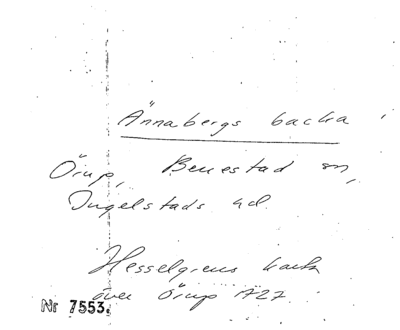 Ännabergs backa
Örup, Benestad sn,
Ingelstads hd.
Hesselgrens karta
över Örup 1727
Nr 7553.